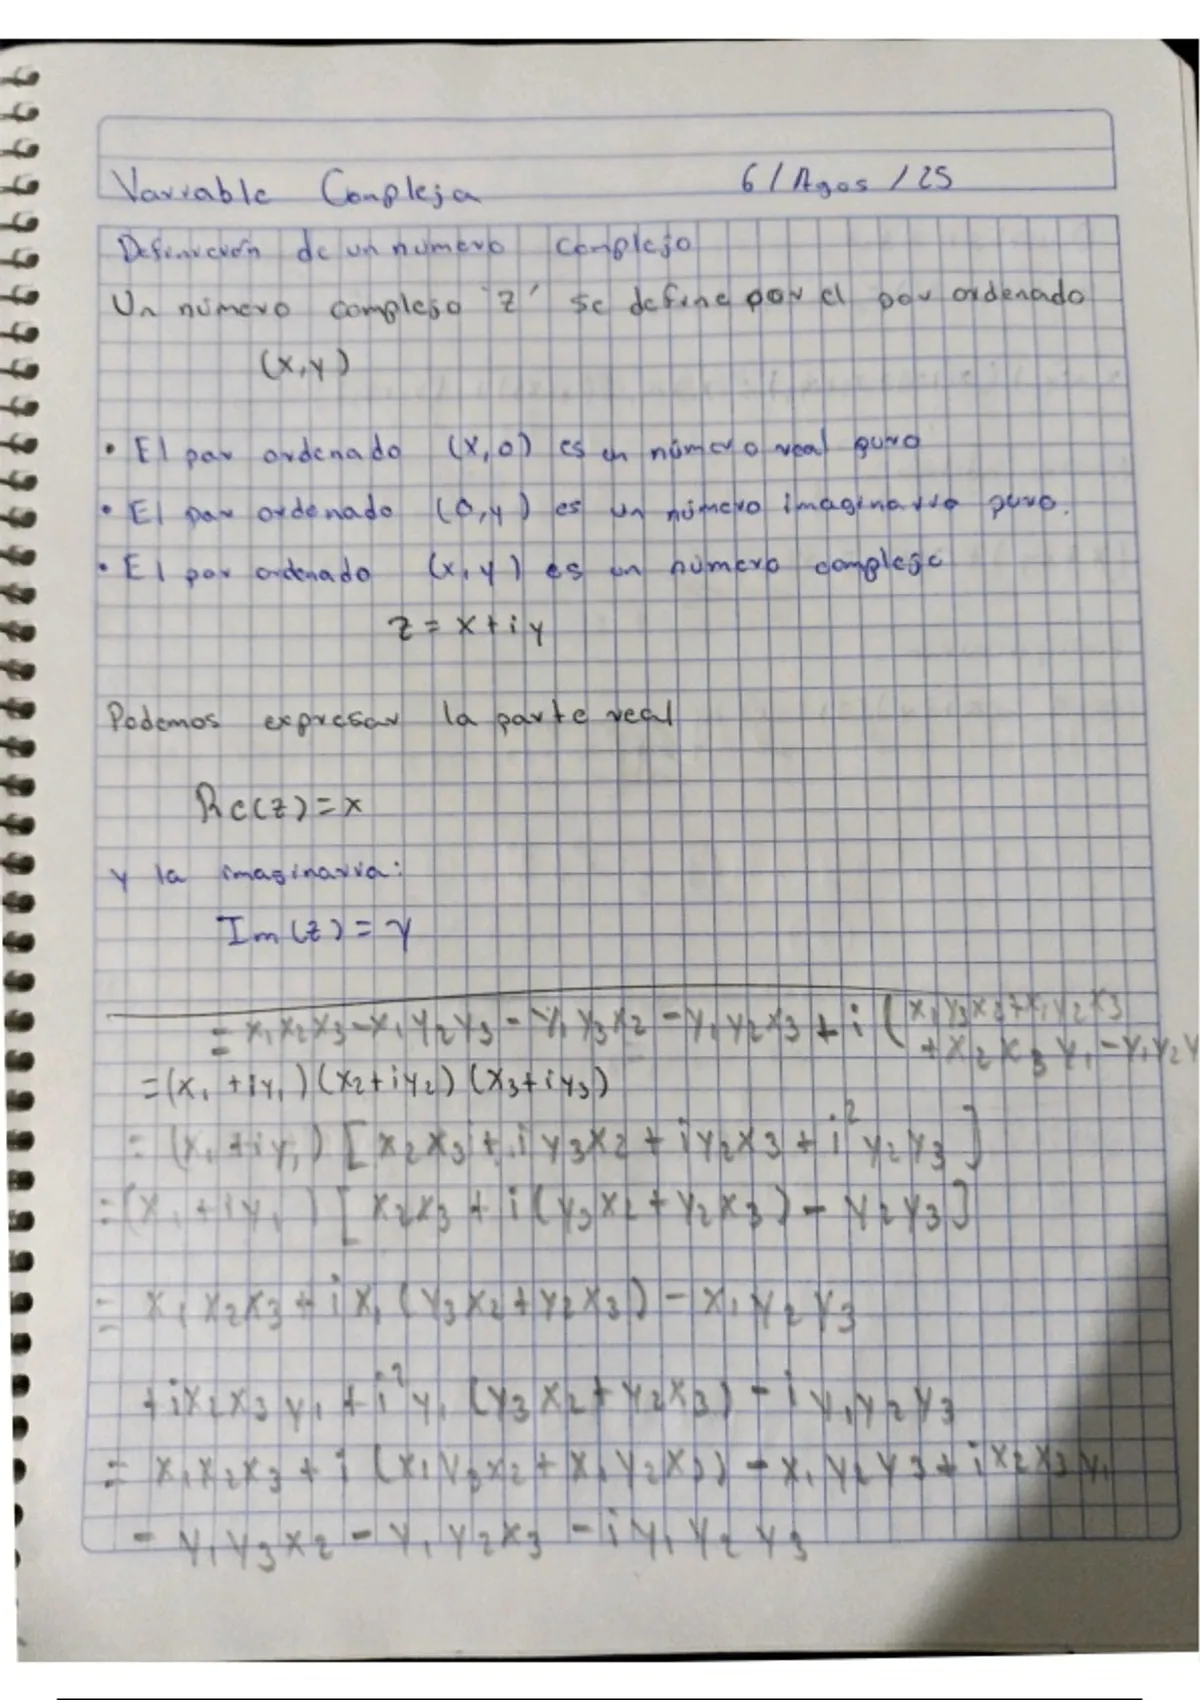 Variable Compleja 6/Agos/25
Definición de un numero complejo
Un número complejo "z" se define por el par ordenado
(x,y)
• El par ordenado (x,0) es un número real puro
• El par ordenado (0,y) es un número imaginario puro.
• El par ordenado (x,y) es un número complejo
z = x + iy
Podemos expresar la parte real
Re(z) = x
y la imaginaria:
Im(z) = y
= x₁x₂x₃ - x₁y₂y₃ - y₁y₃x₂ - y₁y₂x₃ + i (x₁y₃x₂ + x₁y₂x₃
+ x₂x₃y₁ - y₁y₂y
= (x₁ + iy₁)(x₂ + iy₂)(x₃ + iy₃)
= (x₁ + iy₁) [x₂x₃ + iy₃x₂ + iy₂x₃ + i²y₂y₃]
= (x₁ + iy₁) [x₂x₃ + i(y₃x₂ + y₂x₃) - y₂y₃]
= x₁x₂x₃ + ix₁(y₃x₂ + y₂x₃) - x₁y₂y₃
+ ix₂x₃y₁ + i²y₁(y₃x₂ + y₂x₃) - iy₁y₂y₃
= x₁x₂x₃ + i(x₁y₃x₂ + x₁y₂x₃) - x₁y₂y₃ + ix₂x₃y₁
- y₁y₃x₂ - y₁y₂x₃ - iy₁y₂y₃